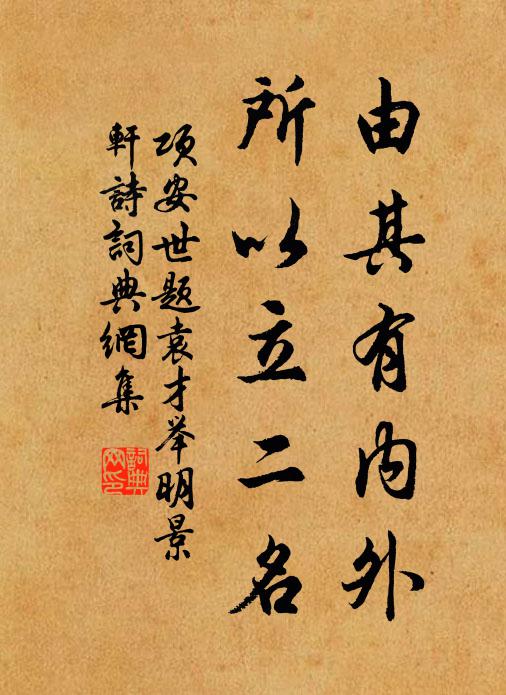 由其有内外
所以立二名
项安世题袁才举明景
軒詩詞典網集
詞典網印